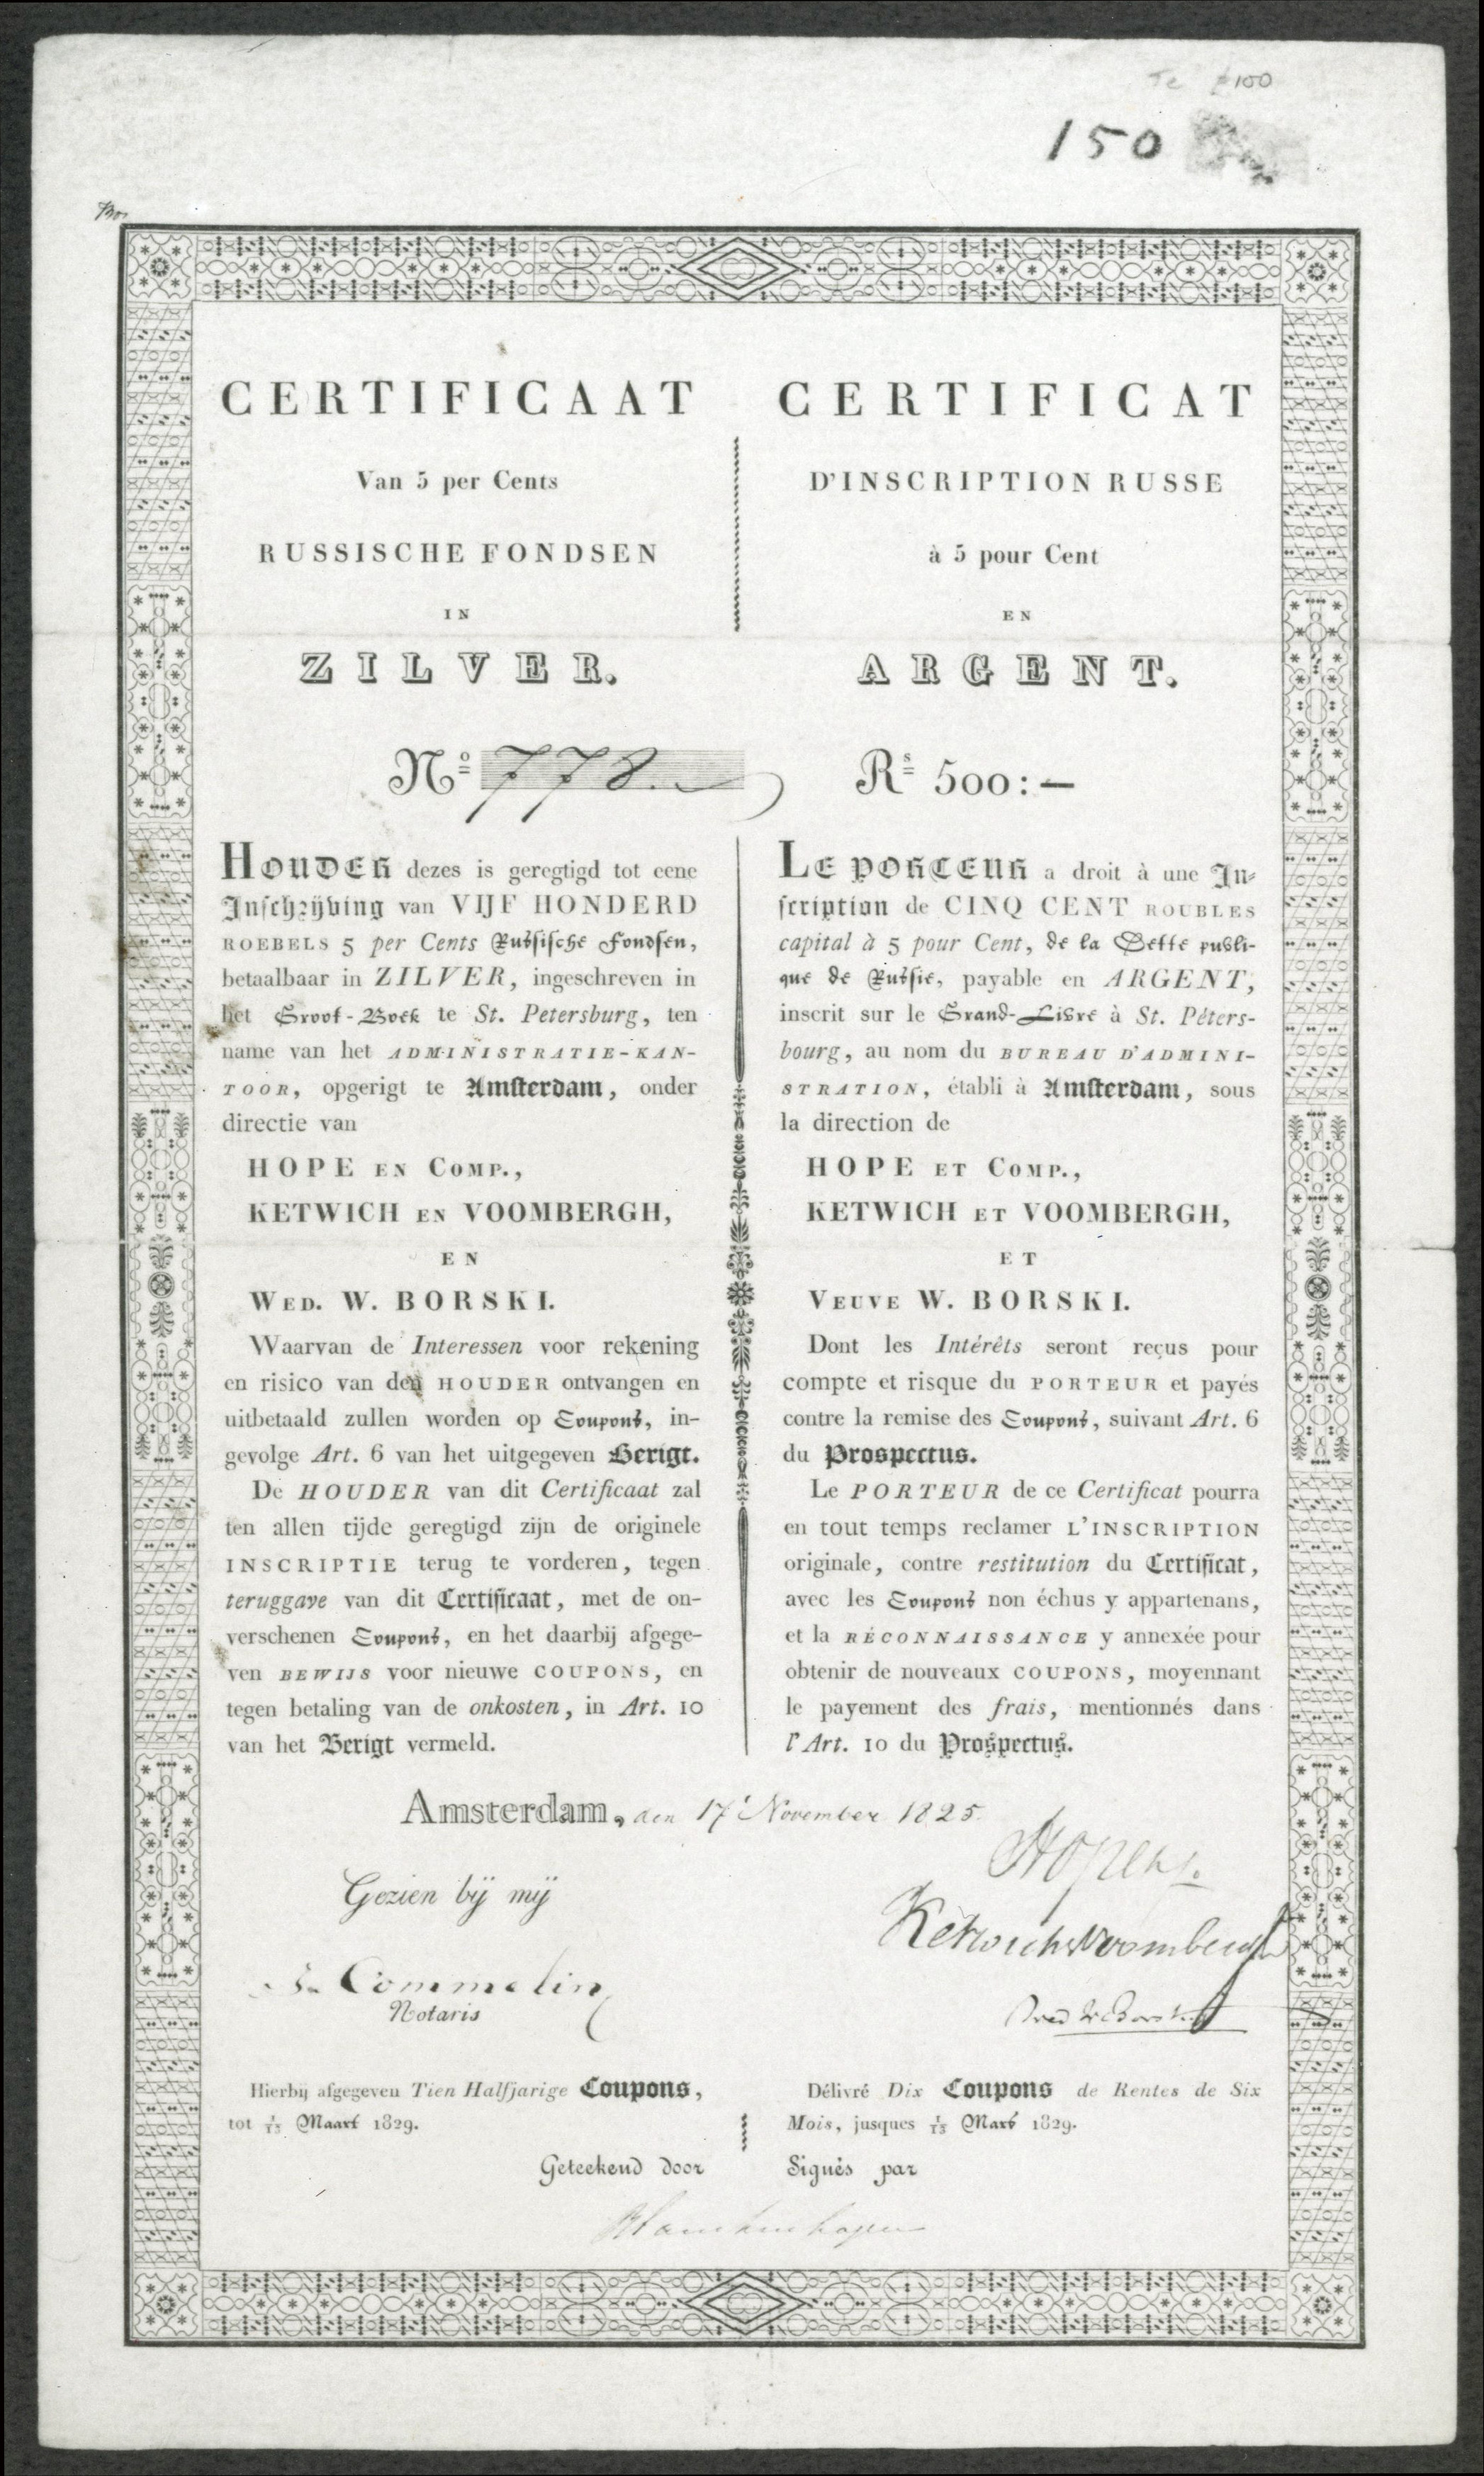 150
CERTIFICAAT
Van 5 per Cents
RUSSISCHE FONDSEN
IN
ZILVER.
Nº 778.
HOUDER dezes is geregtigd tot eene
Inschrijving van VIJF HONDERD
ROEBELS 5 per Cents Russische Fondsen,
betaalbaar in ZILVER, ingeschreven in
het Groot-Boek te St. Petersburg, ten
name van het ADMINISTRATIE-KAN-
TOOR, opgerigt te Amsterdam, onder
directie van
HOPE EN COMP.,
KETWICH EN VOOMBERGH,
EN
WED. W. BORSKI.
Waarvan de Interessen voor rekening
en risico van den HOUDER ontvangen en
uitbetaald zullen worden op Coupons, in-
gevolge Art. 6 van het uitgegeven Berigt.
De HOUDER van dit Certificaat zal
ten allen tijde geregtigd zijn de originele
INSCRIPTIE terug te vorderen, tegen
teruggave van dit Certificaat, met de on-
verschenen Coupons, en het daarbij afgege-
ven BEWIJS voor nieuwe COUPONS, en
tegen betaling van de onkosten, in Art. 10
van het Berigt vermeld.
CERTIFICAT
D'INSCRIPTION RUSSE
à 5 pour Cent
EN
ARGENT.
Rˢ 500:—
LE PORTEUR a droit à une In-
scription de CINQ CENT ROUBLES
capital à 5 pour Cent, de la Dette publi-
que de Russie, payable en ARGENT,
inscrit sur le Grand-Livre à St. Péters-
bourg, au nom du BUREAU D'ADMINI-
STRATION, établi à Amsterdam, sous
la direction de
HOPE ET COMP.,
KETWICH ET VOOMBERGH,
ET
VEUVE W. BORSKI.
Dont les Intérêts seront reçus pour
compte et risque du PORTEUR et payés
contre la remise des Coupons, suivant Art. 6
du Prospectus.
Le PORTEUR de ce Certificat pourra
en tout temps reclamer L'INSCRIPTION
originale, contre restitution du Certificat,
avec les Coupons non échus y appartenans,
et la RÉCONNAISSANCE y annexée pour
obtenir de nouveaux COUPONS, moyennant
le payement des frais, mentionnés dans
l'Art. 10 du Prospectus.
Amsterdam, den 17 November 1825.
Gezien bij mij
Commelin
Notaris
Ketwich & Voombergh
Wed W Borski
Hierbij afgegeven Tien Halfjarige Coupons,
tot 1/13 Maart 1829.
Geteekend door
Délivré Dix Coupons de Rentes de Six
Mois, jusques 1/13 Mars 1829.
Signés par